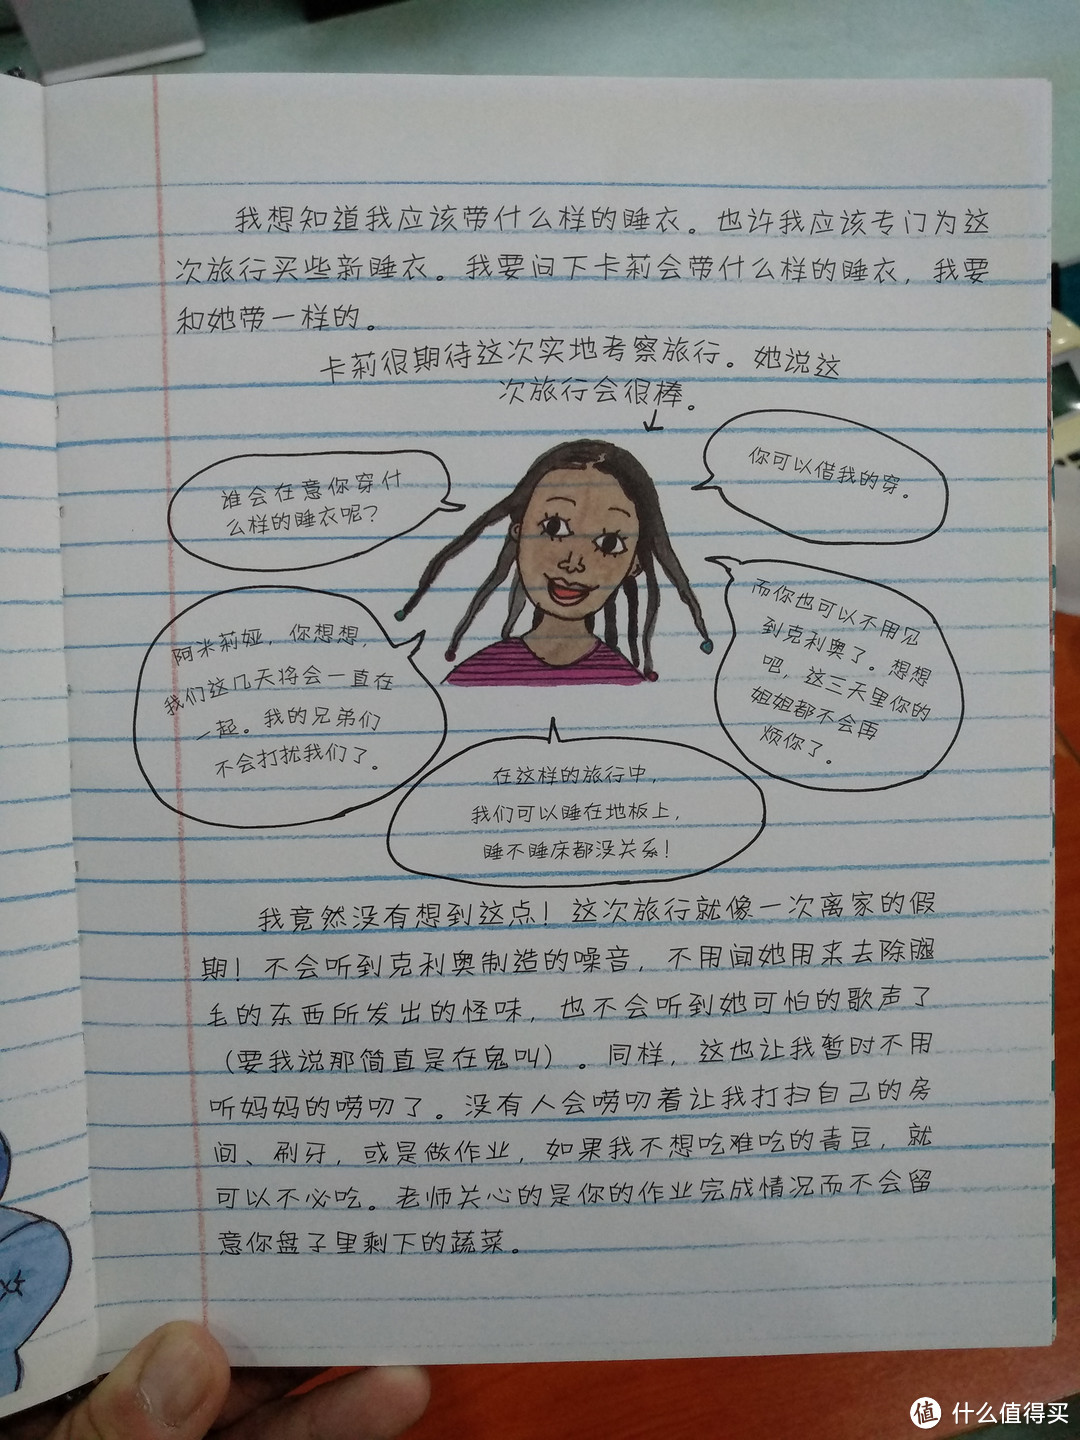 我想知道我应该带什么样的睡衣。也许我应该专门为这
次旅行买些新睡衣。我要问下卡莉会带什么样的睡衣，我要
和她带一样的。
卡莉很期待这次实地考察旅行。她说这
次旅行会很棒。
谁会在意你穿什
么样的睡衣呢？
你可以借我的穿。
阿米莉娅，你想想，
我们这几天将会一直在
一起。我的兄弟们
不会打扰我们了。
而你也可以不用见
到克利奥了。想想
吧，这三天里你的
姐姐都不会再
烦你了。
在这样的旅行中，
我们可以睡在地板上，
睡不睡床都没关系！
我竟然没有想到这点！这次旅行就像一次离家的假
期！不会听到克利奥制造的噪音，不用闻她用来去除腿
毛的东西所发出的怪味，也不会听到她可怕的歌声了
（要我说那简直是在鬼叫）。同样，这也让我暂时不用
听妈妈的唠叨了。没有人会唠叨着让我打扫自己的房
间、刷牙，或是做作业，如果我不想吃难吃的青豆，就
可以不必吃。老师关心的是你的作业完成情况而不会留
意你盘子里剩下的蔬菜。
值 什么值得买